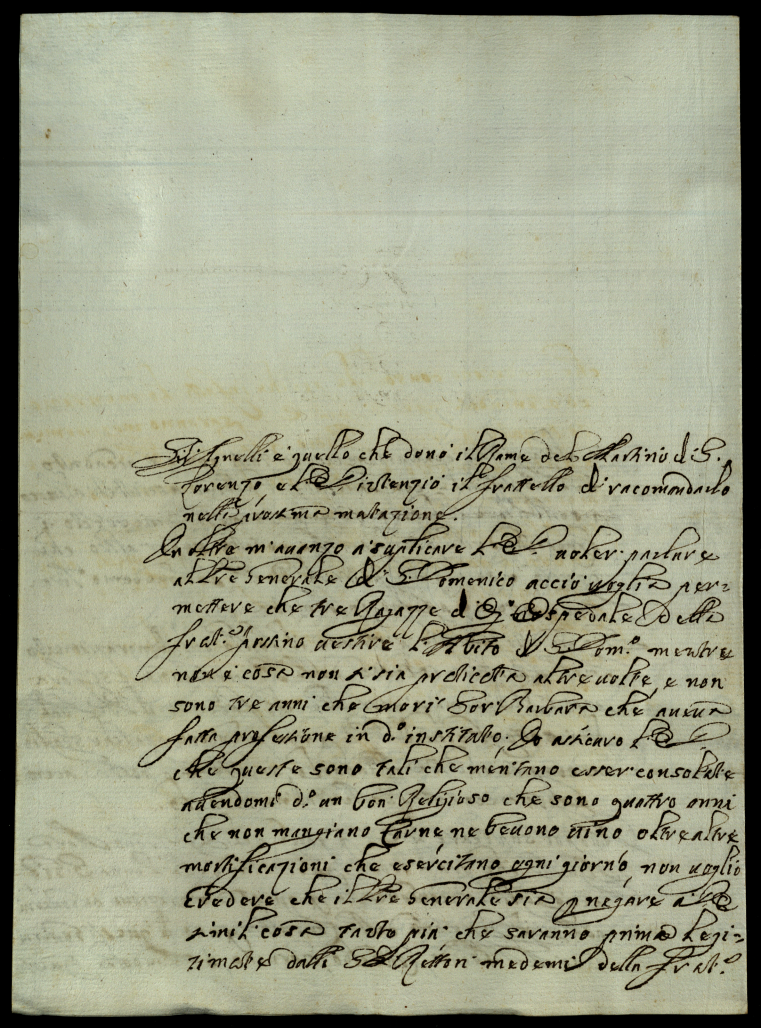 quello che donò il Rame del Martirio di S.
Lorenzo il frattello di racomandarlo
nella mutazione.
In oltre m'auanzo a suplicare uoler parlare
al Pre Generale di S. Domenico acciò uoglia per=
mettere che tre Ragazze di Ospedale della
Frat.a possino uestire l'Abito di S. Dom.o mentre
non è cosa non si sia praticata altre uolte, e non
sono tre anni che morì Sor Barbara che aueua
fatta professione in d.o instituto. Io assicuro
che queste sono tali che meritano esser consolate
auendomi d.o un bon Religioso che sono quattro anni
che non mangiano Carne ne beuono uino oltre altre
mortificazioni che esercitano ogni giorno non uoglio
Credere che il Pre Generale sia p negare a
simil cosa tanto più che saranno prima legi=
timate dalli SS. Rettori medemi della Frat.a